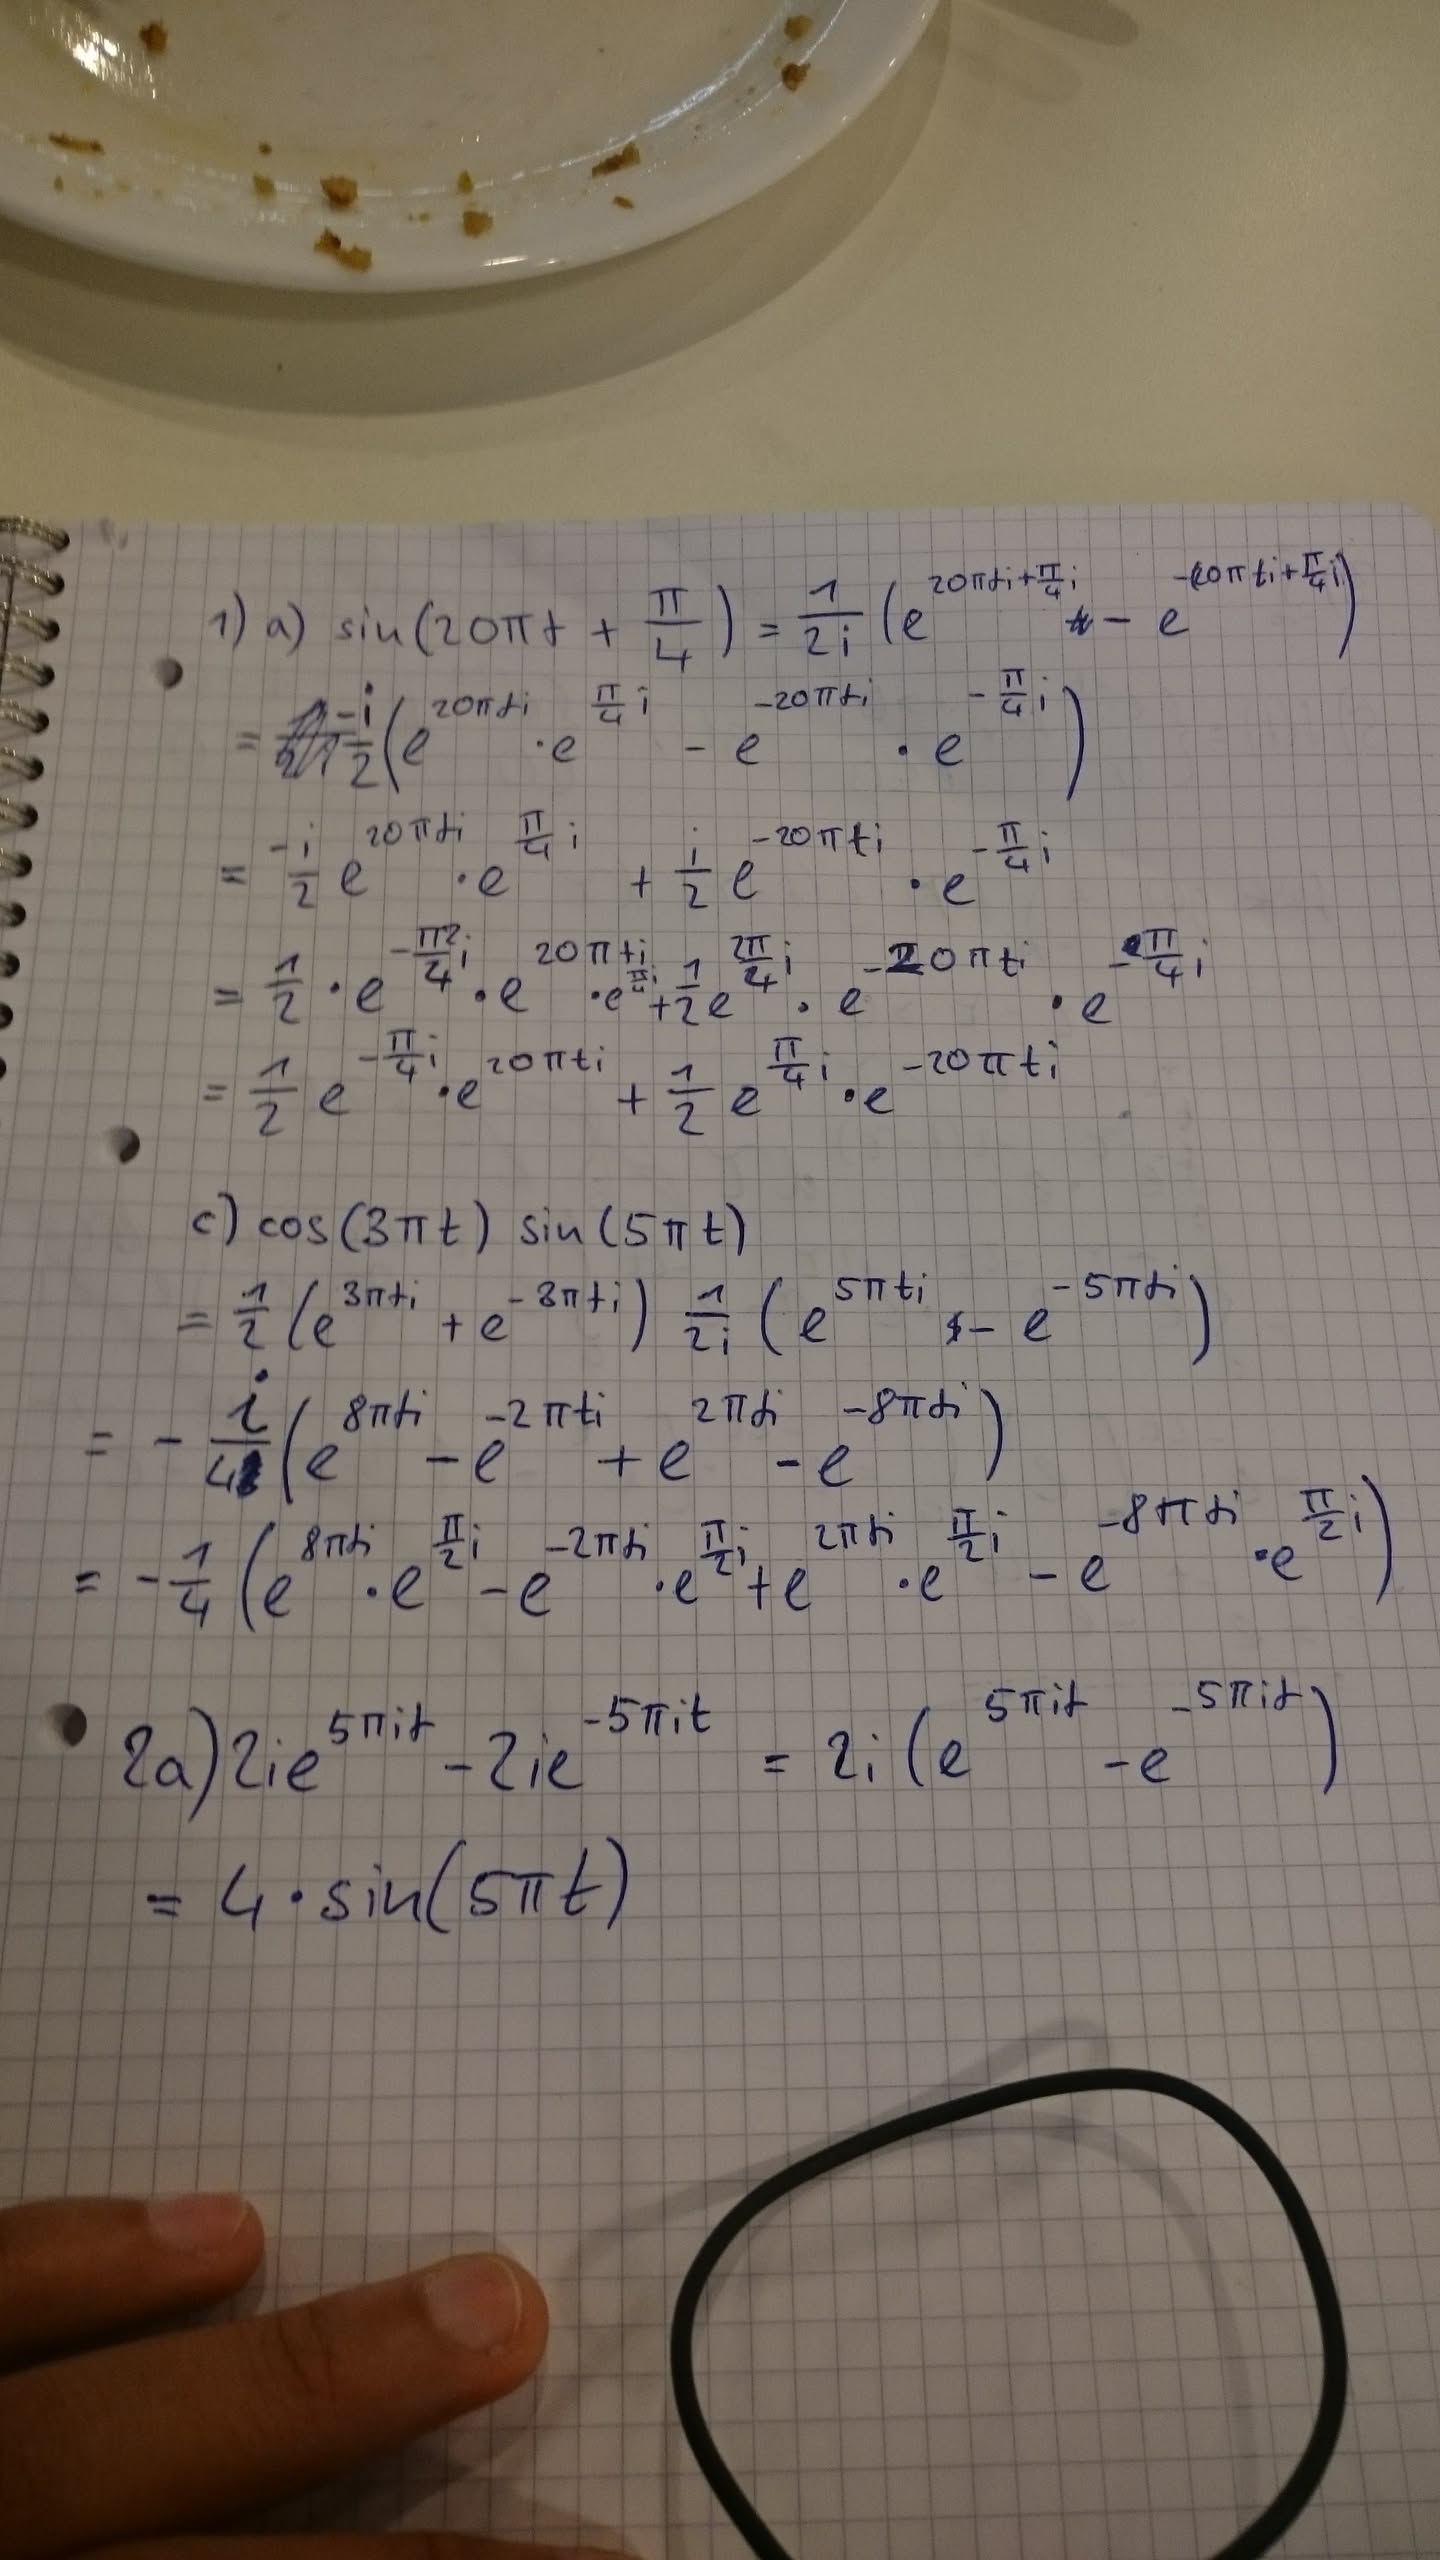 1) a) sin(20πt + π/4) = 1/2i (e^(20πti+π/4 i) - e^(-20πti+π/4 i))
= -i/2 (e^(20πti) · e^(π/4 i) - e^(-20πti) · e^(-π/4 i))
= -i/2 e^(20πti) · e^(π/4 i) + i/2 e^(-20πti) · e^(-π/4 i)
= 1/2 · e^(-π2/4 i) · e^(20πti) · e^(π/4 i) + 1/2 e^(2π/4 i) · e^(-20πti) · e^(-π/4 i)
= 1/2 e^(-π/4 i) · e^(20πti) + 1/2 e^(π/4 i) · e^(-20πti)
c) cos(3πt) sin(5πt)
= 1/2 (e^(3πti) + e^(-3πti)) 1/2i (e^(5πti) - e^(-5πti))
= - i/4 (e^(8πti) - e^(-2πti) + e^(2πti) - e^(-8πti))
= - 1/4 (e^(8πti) · e^(π/2 i) - e^(-2πti) · e^(π/2 i) + e^(2πti) · e^(π/2 i) - e^(-8πti) · e^(π/2 i))
2a) 2ie^(5πit) - 2ie^(-5πit) = 2i (e^(5πit) - e^(-5πit))
= 4 · sin(5πt)